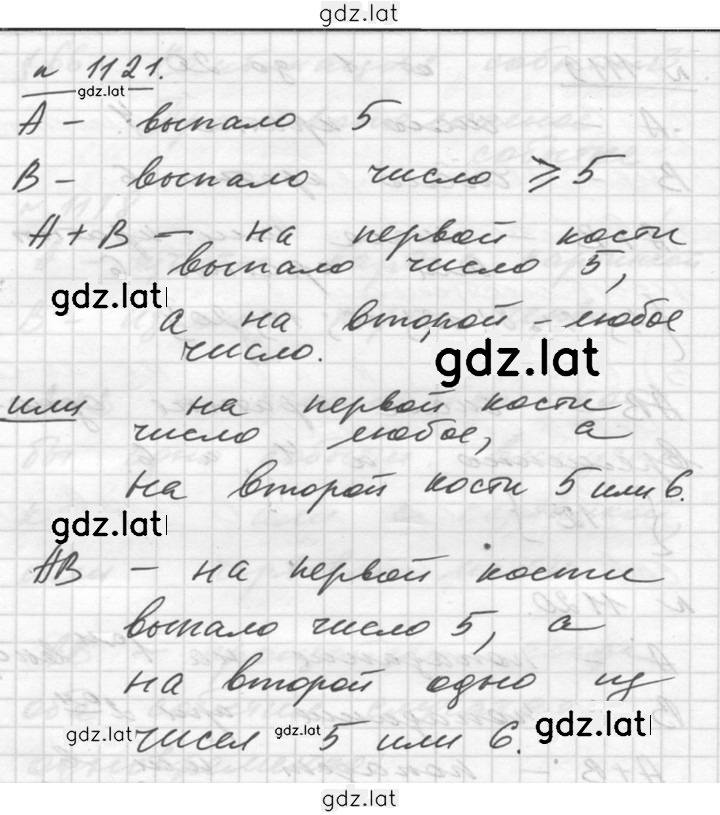 gdz.lat
n 1121.
gdz.lat
A - выпало 5
B - выпало число ⩾ 5
A + B - на первой кости
выпало число 5,
gdz.lat
а на второй - любое
число.
gdz.lat
или на первой кости
число любое, а
на второй кости 5 или 6.
gdz.lat
AB - на первой кости
выпало число 5, а
на второй одно из
gdz.lat чисел gdz.lat 5 или 6. gdz.lat
gdz.lat